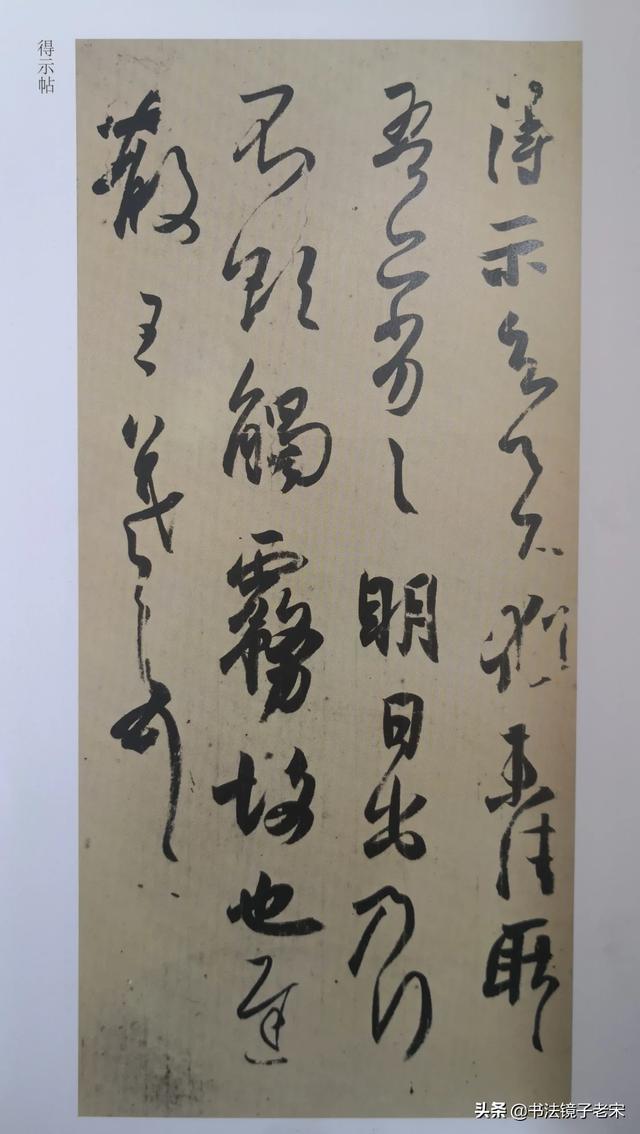 得示知足下猶未佳耿〻
吾亦劣〻明日出乃行
不欲觸霧故也遲
散王羲之頓首
得示帖
头条 @书法镜子老宋